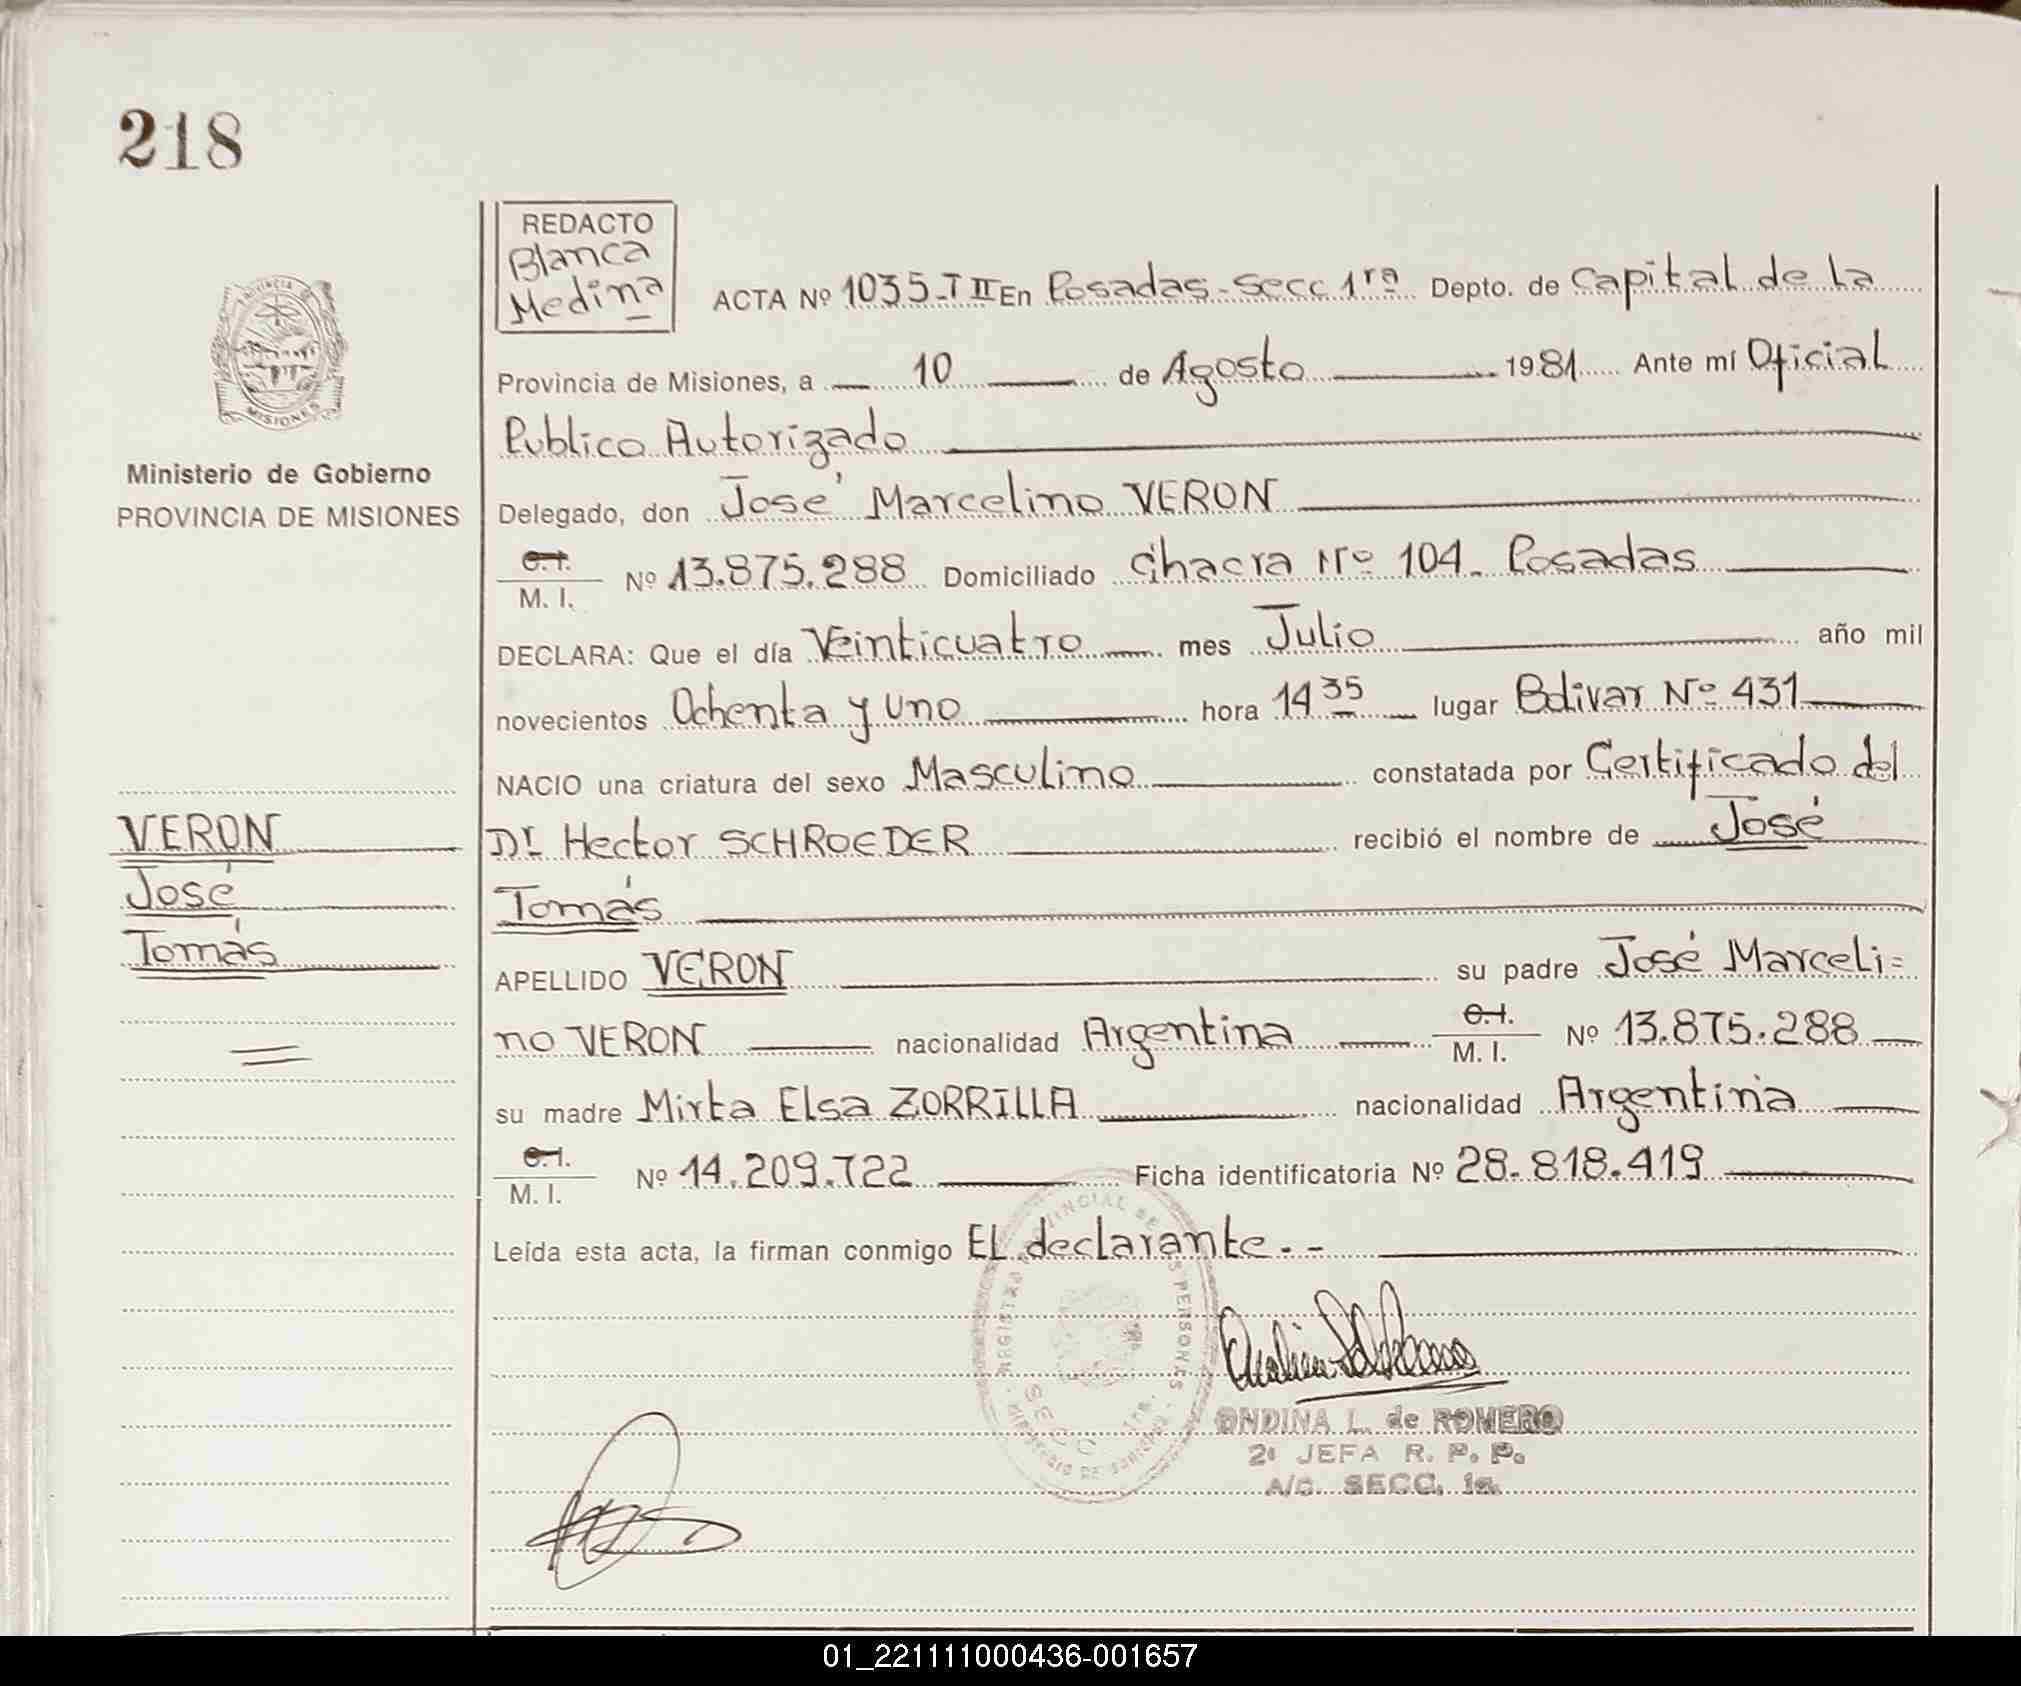 218
REDACTO
Blanca
Medina
ACTA Nº 1035-T II En Posadas-Secc 1ra Depto. de Capital de la
Provincia de Misiones, a 10 de Agosto 1981 Ante mí Oficial
Publico Autorizado
Delegado, don José Marcelino VERON
C.I.
M. I. Nº 13.875.288 Domiciliado Chacra Nº 104 - Posadas
DECLARA: Que el día Veinticuatro mes Julio año mil
novecientos Ochenta y Uno hora 14 35 lugar Bolivar Nº 431
NACIO una criatura del sexo Masculino constatada por Certificado del
Dr Hector SCHROEDER recibió el nombre de José
Tomás
APELLIDO VERON su padre José Marceli=
no VERON nacionalidad Argentina C.I. M. I. Nº 13.875.288
su madre Mirta Elsa ZORRILLA nacionalidad Argentina
C.I.
M. I. Nº 14.209.722 Ficha identificatoria Nº 28.818.419
Leída esta acta, la firman conmigo El declarante.-
PROVINCIA DE
MISIONES
Ministerio de Gobierno
PROVINCIA DE MISIONES
VERON
José
Tomás
REGISTRO PROVINCIAL DE LAS PERSONAS
MINISTERIO DE GOBIERNO
SECC 1ra.
ONDINA L. de ROMERO
2ª JEFA R. P. P.
A/C. SECC. 1a.
01_221111000436-001657